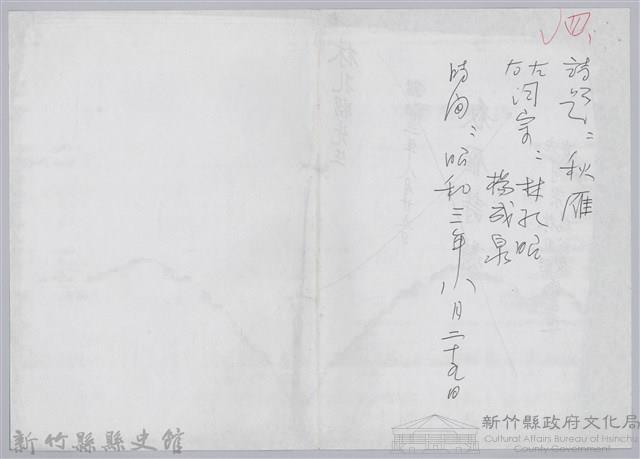 四、
詩題：秋雁
左右詞宗：林孔昭
楊成泉
時间：昭和三年八月二十九日
新竹縣縣史館
新竹縣政府文化局
Cultural Affairs Bureau of Hsinchu
County Government